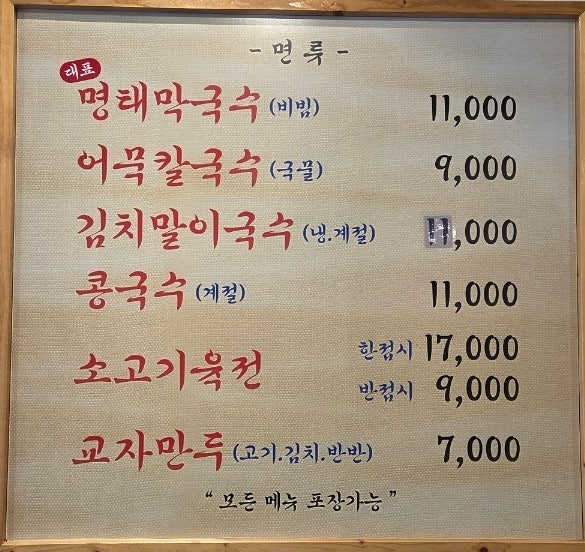 - 면 류 -
대표
명태막국수 (비빔) 11,000
어묵칼국수 (국물) 9,000
김치말이국수 (냉.계절) ,000
콩국수 (계절) 11,000
소고기육전 한접시 17,000
반접시 9,000
교자만두 (고기.김치.반반) 7,000
“ 모든 메뉴 포장가능 ”